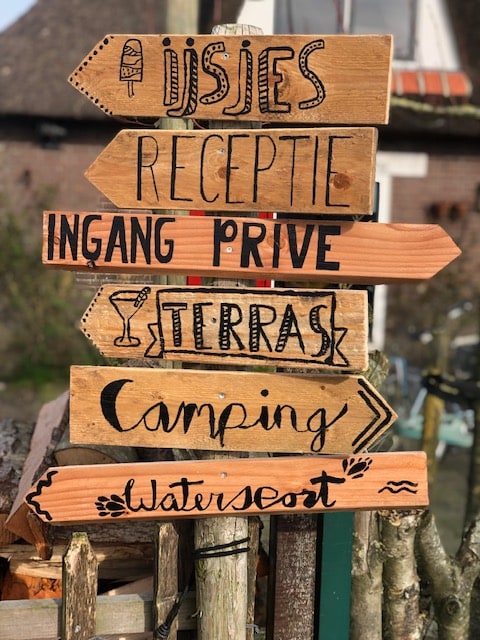 ijsjes
RECEPTIE
INGANG PRIVE
TERRAS
Camping
Watersport